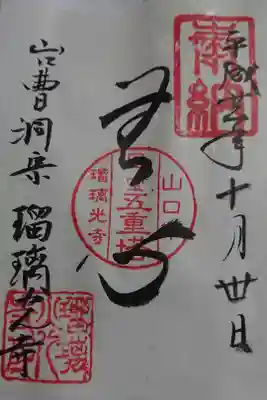 奉納
平成
年十月丗日
心
山口
五重塔
瑠璃光寺
山口曹洞宗 瑠璃光寺